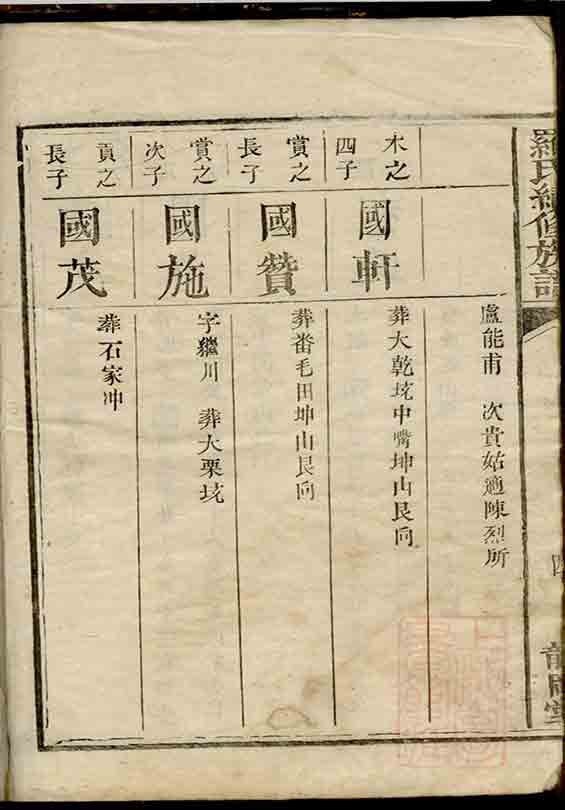 羅氏續修族譜
盧能甫 次貴姑適陳烈所
木之
四子
國軒
葬大乾𡉏中嘴坤山艮向
賞之
長子
國贊
葬畨毛田坤山艮向
賞之
次子
國施
字繼川 葬大栗𡉏
貢之
長子
國茂
葬石家冲
四